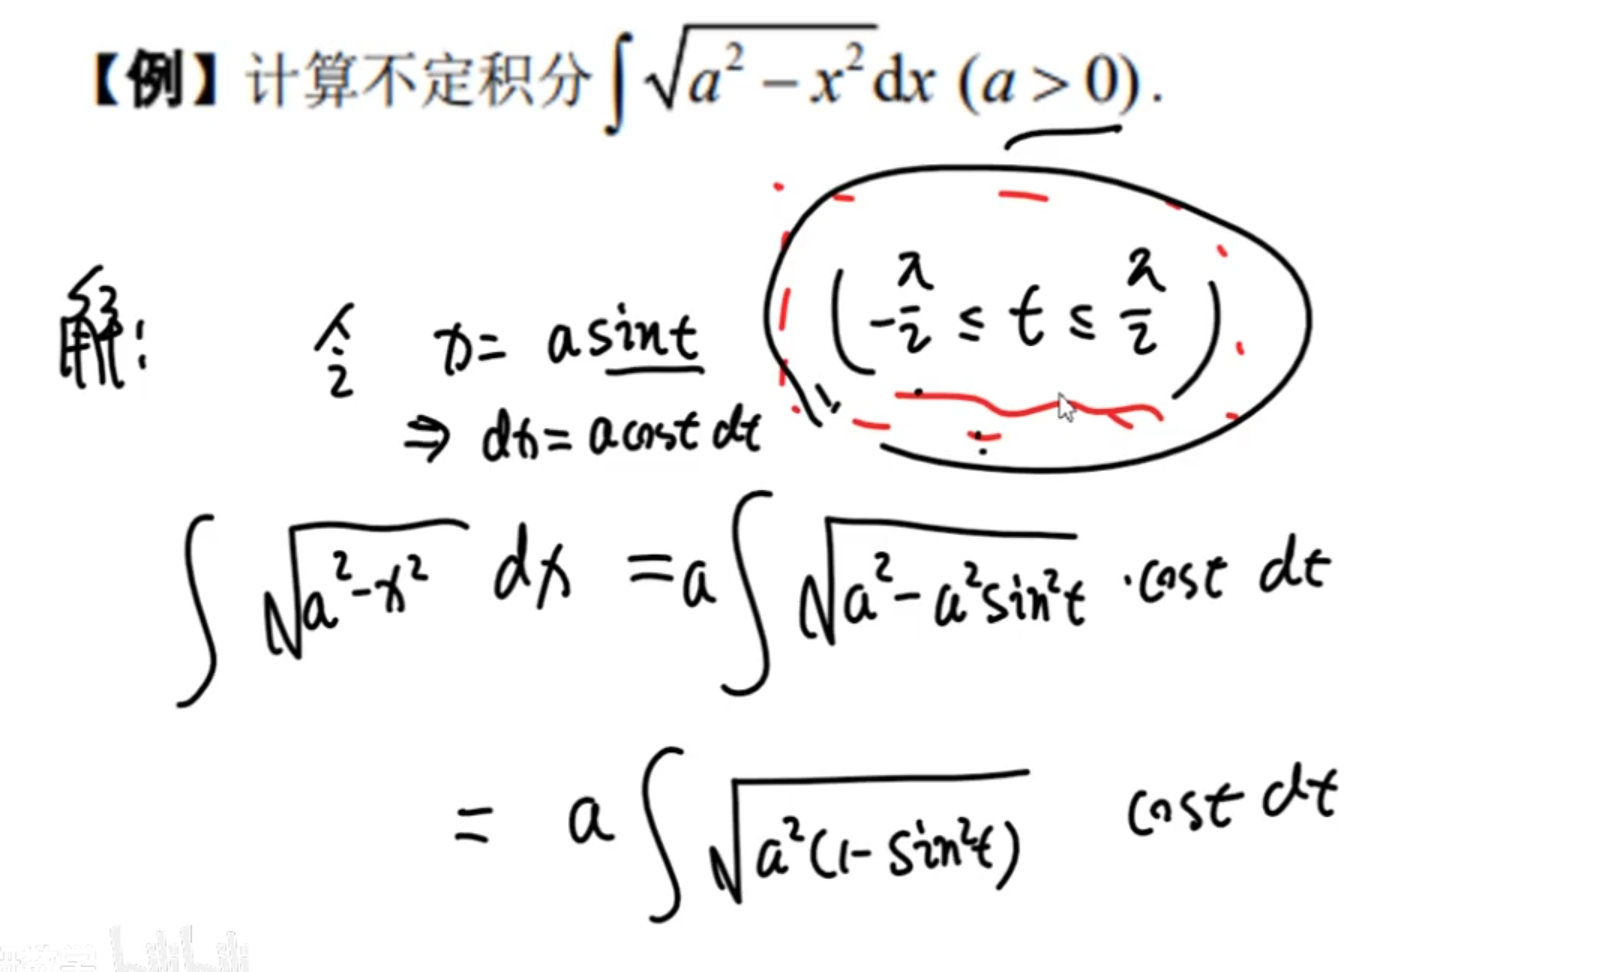 【例】计算不定积分∫√(a²－x²)dx (a＞0).
解: 令 x = a sint (-π/2 ≤ t ≤ π/2)
⇒ dx = a cost dt
∫√(a²-x²) dx = a∫√(a²-a²sin²t) ·cost dt
= a∫√(a²(1-sin²t)) cost dt